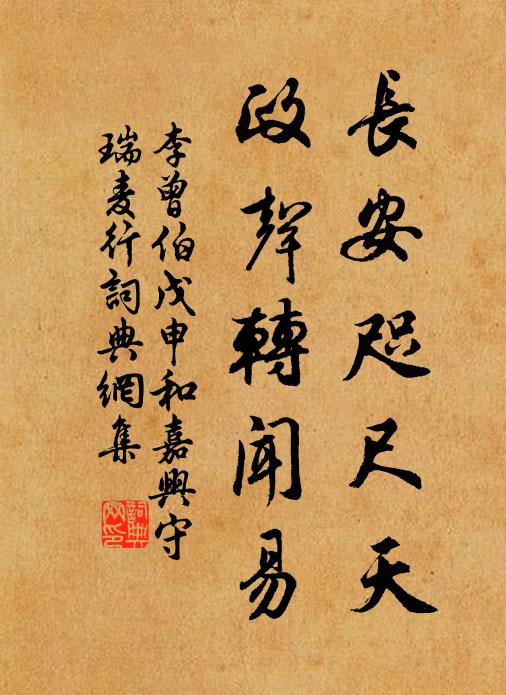 長安咫尺天
政聲轉聞易
李曾伯戊申和嘉興守
瑞麦行詞典網集
詞典网印